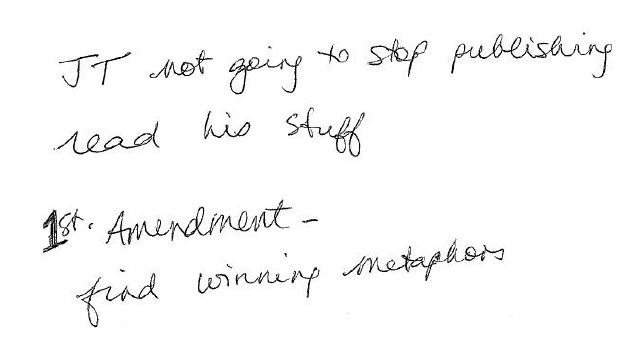 JT not going to stop publishing
read his stuff
1st. Amendment -
find winning metaphors